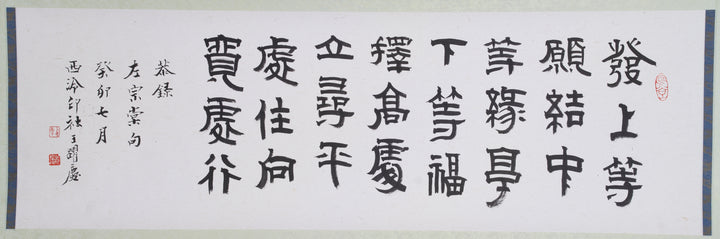 發上等
願結中
等緣享
下等福
擇高處
立尋平
處住向
寬處行
恭録
左宗棠句
癸卯七月
西泠印社王躍